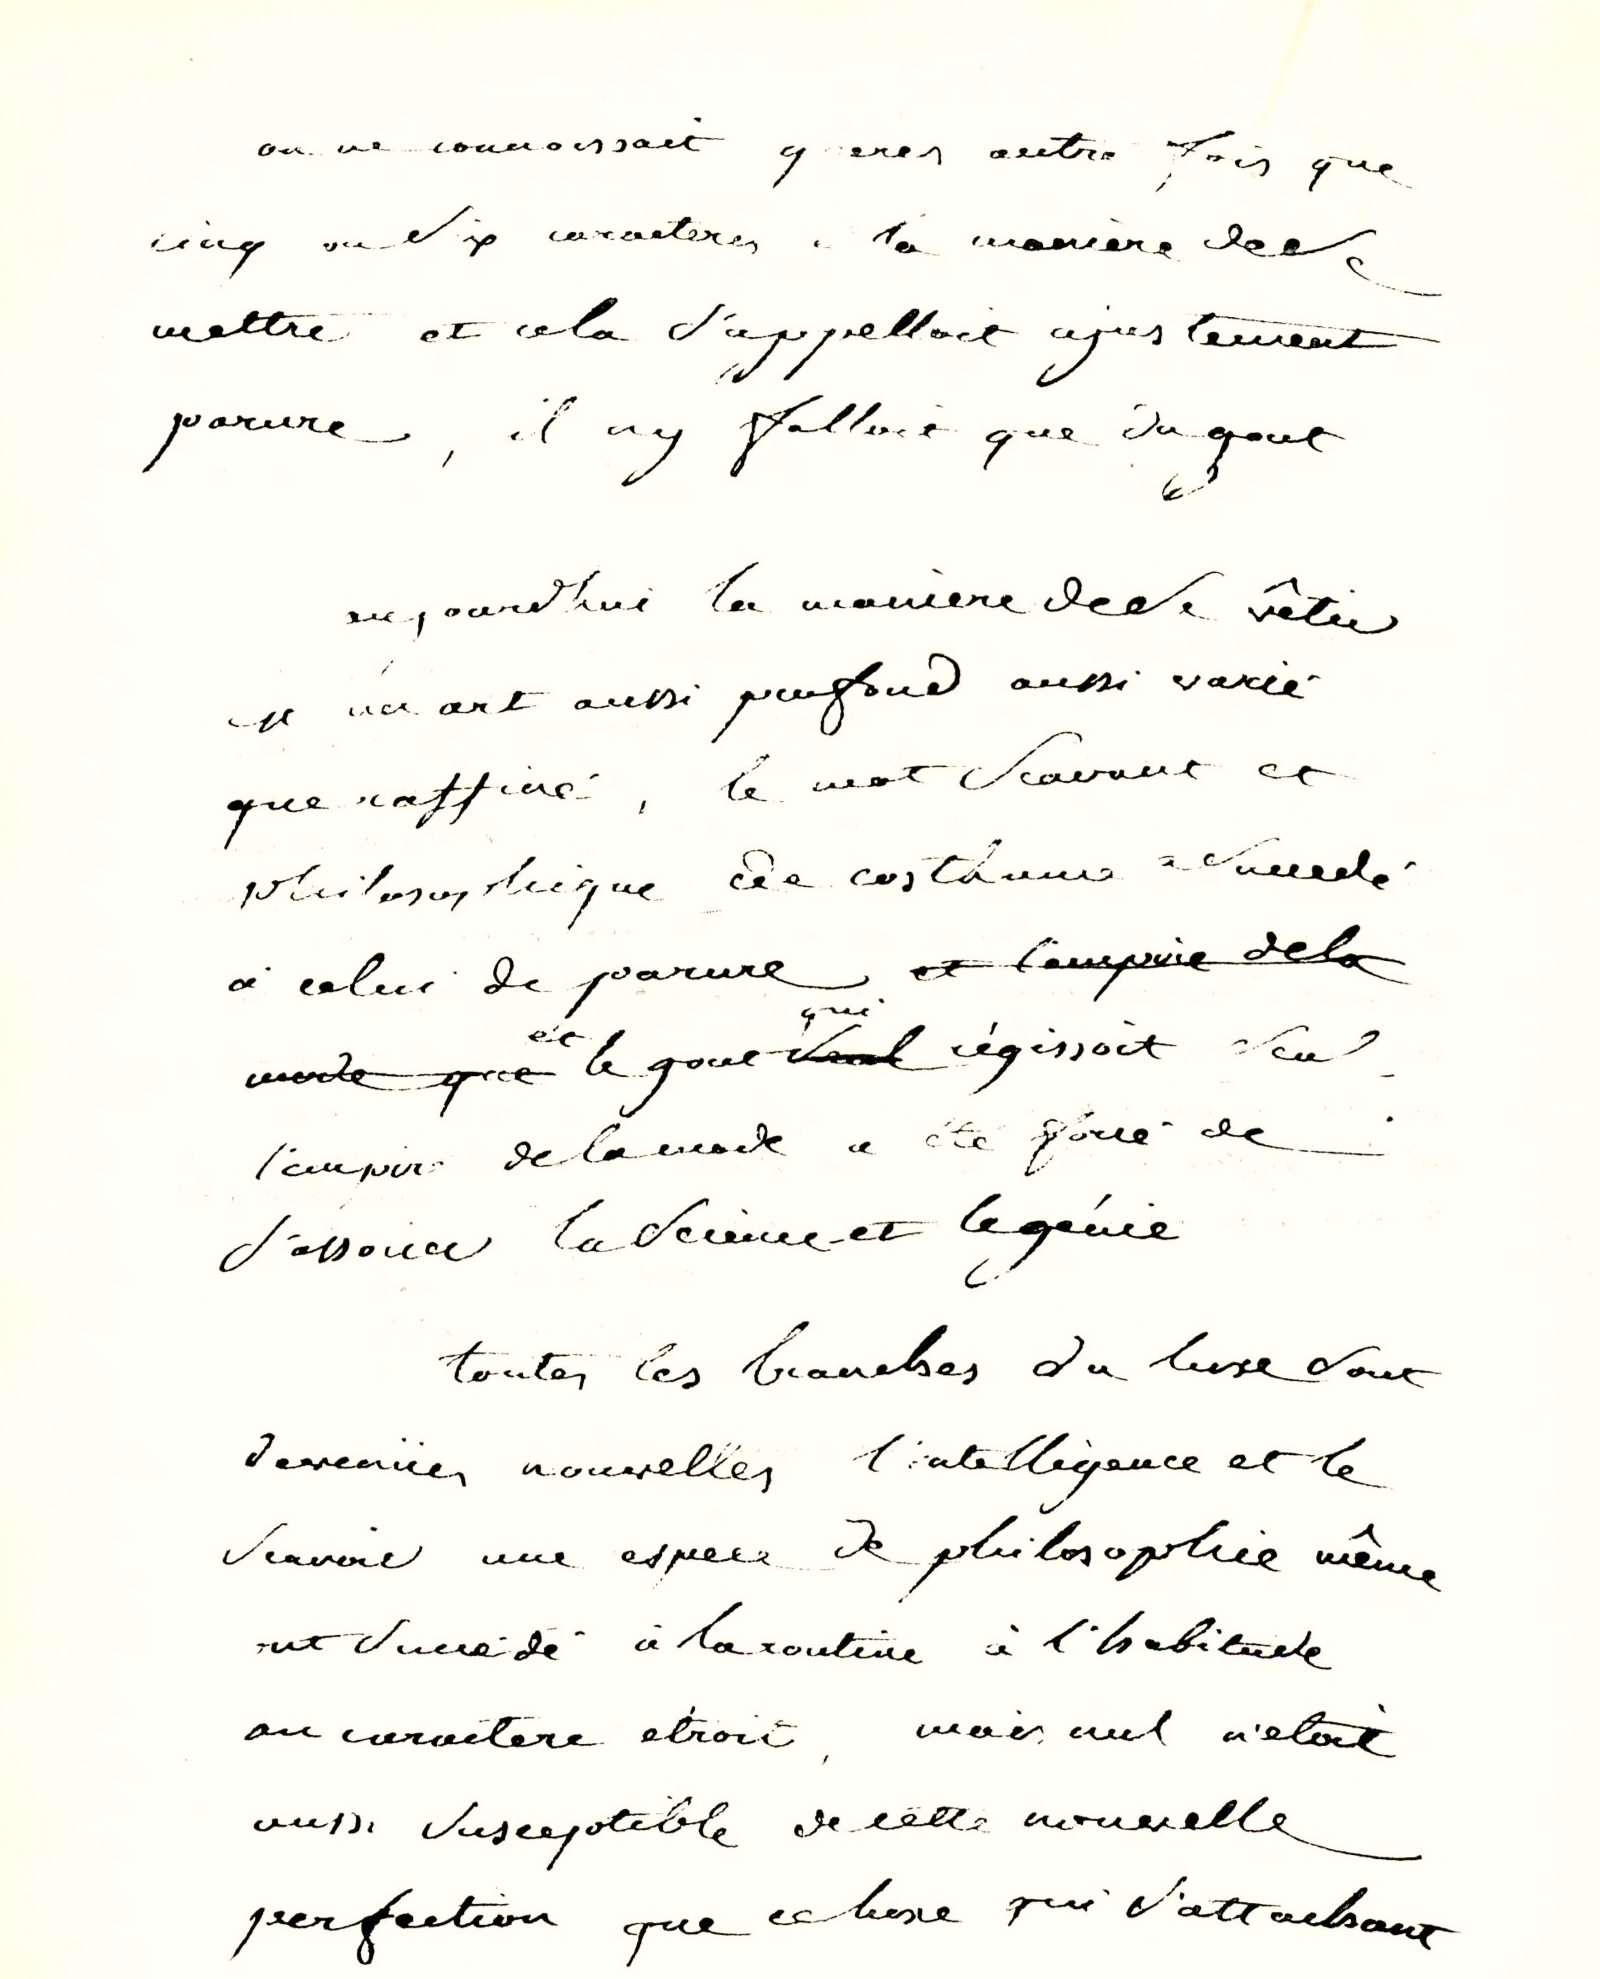 on ne connoissait gueres autre fois que
cinq ou six caracteres a la manière de se
mettre et cela s'appelloit ajustement
parure, il ny falloit que du gout
aujourdhui la maniere de se vêtir
est un art aussi profond aussi varié
que raffiné, le mot scavant et
philosophique de costhume a succedé
à celui de parure et l'empire de la
mode que et le gout seul qui régissoit seul
l'empire de la mode a été forcé de
s'associer la science et le génie
toutes les branches du luxe sont
devenües nouvelles l'intelligence et le
scavoir une espece de philosophie même
ont succédé à la routine à l'habitude
au caractere etroit, mais nul n'etoit
aussi susceptible de cette nouvelle
perfection que ce luxe qui s'attachant